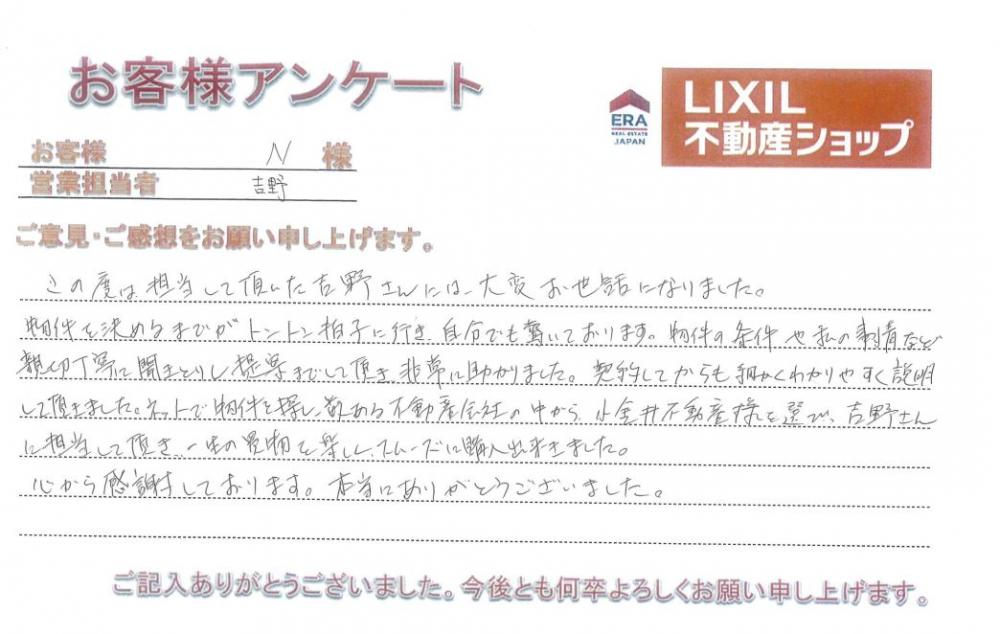 お客様アンケート
ERA
REAL ESTATE
JAPAN
LIXIL
不動産ショップ
お客様 N 様
営業担当者 吉野
ご意見・ご感想をお願い申し上げます。
この度は、担当して頂いた吉野さんには、大変お世話になりました。
物件を決めるまでがトントン拍子に行き、自分でも驚いております。物件の条件や私の事情など
親切丁寧に聞きとりし、提案までして頂き、非常に助かりました。契約してからも細かくわかりやすく説明
して頂きました。ネットで物件を探し、数ある不動産会社の中から、小金井不動産様を選び、吉野さん
に担当して頂き、一生の買物を楽しく、スムーズに購入出来ました。
心から感謝しております。本当にありがとうございました。
ご記入ありがとうございました。今後とも何卒よろしくお願い申し上げます。